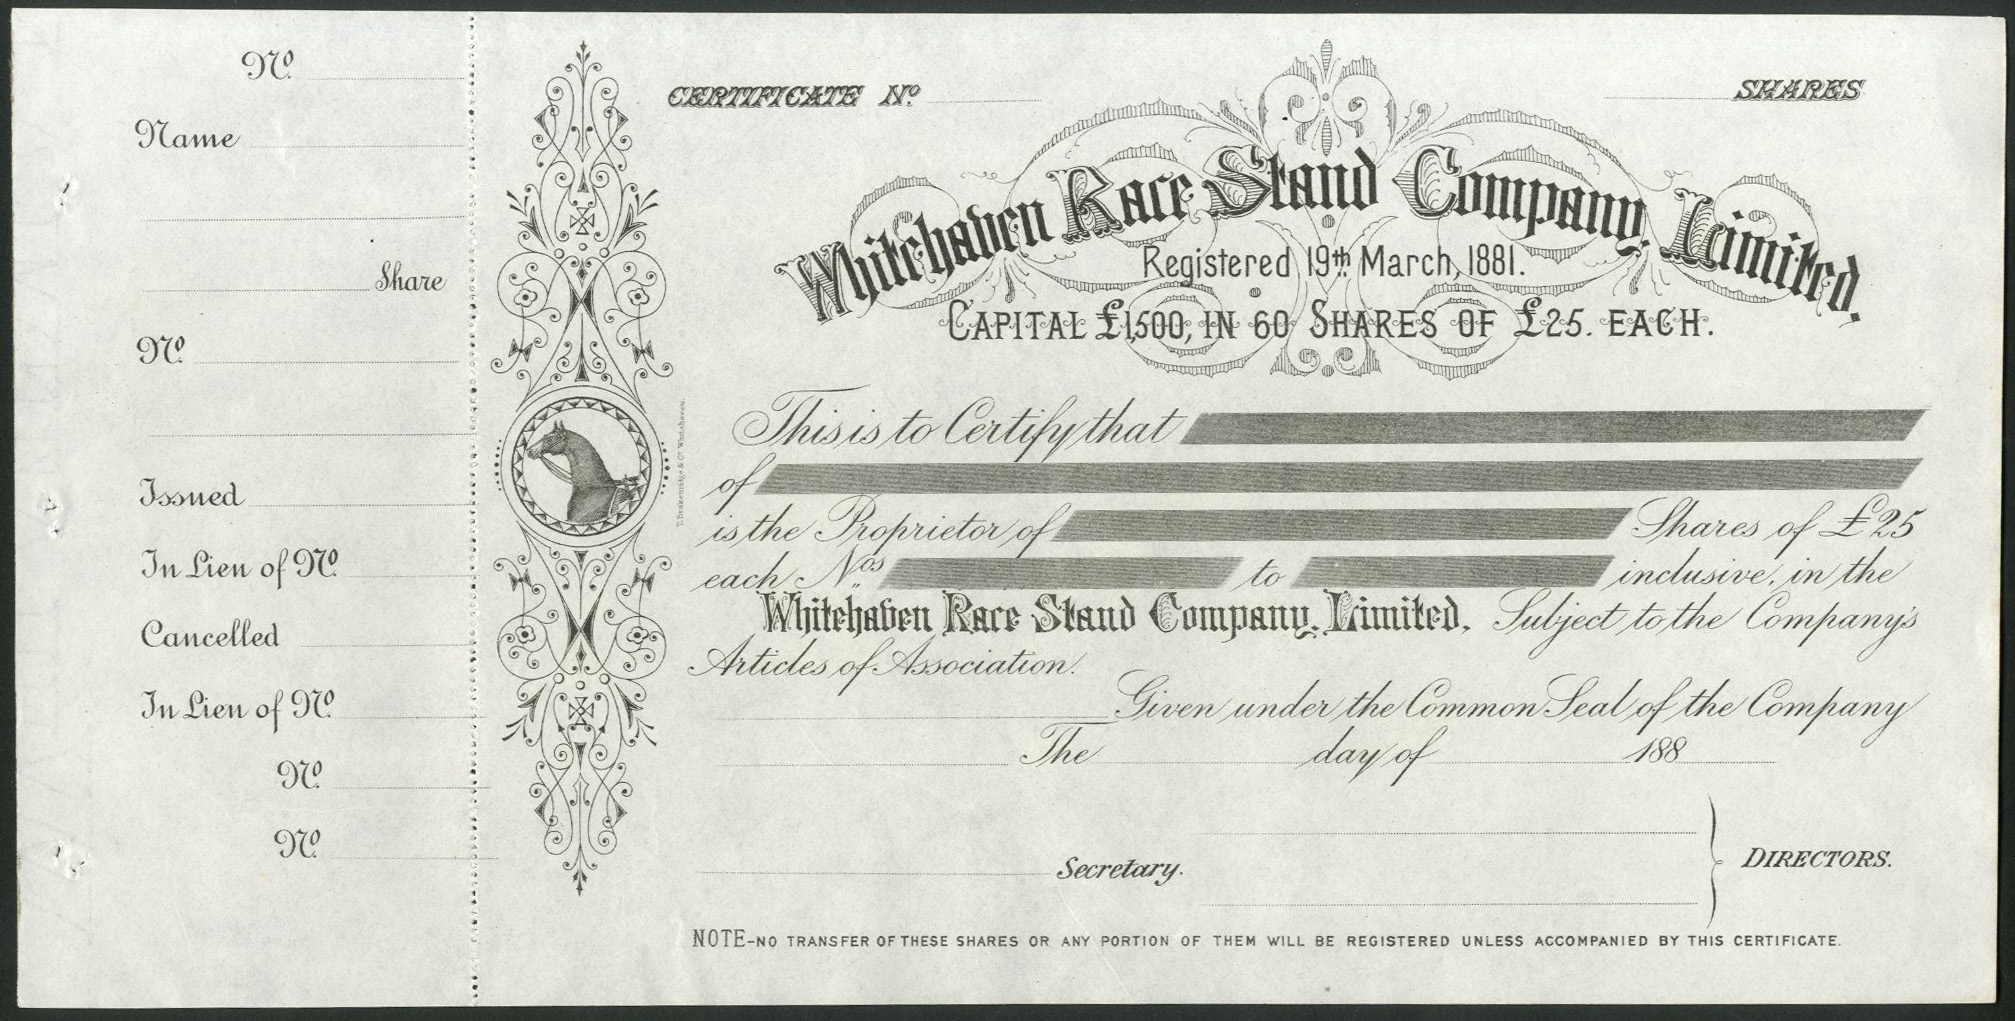 No.
Name
Share
No.
Issued
In Lieu of No.
Cancelled
In Lieu of No.
No.
No.
CERTIFICATE No.
SHARES
Whitehaven Race Stand Company, Limited.
Registered 19th March, 1881.
CAPITAL £1,500, IN 60 SHARES OF £25. EACH.
This is to Certify that
of
is the Proprietor of Shares of £25
each Nos to inclusive, in the
Whitehaven Race Stand Company, Limited, Subject to the Company's
Articles of Association.
Given under the Common Seal of the Company
The day of 188
Secretary.
DIRECTORS.
NOTE-NO TRANSFER OF THESE SHARES OR ANY PORTION OF THEM WILL BE REGISTERED UNLESS ACCOMPANIED BY THIS CERTIFICATE.
& Co. Whitehaven.